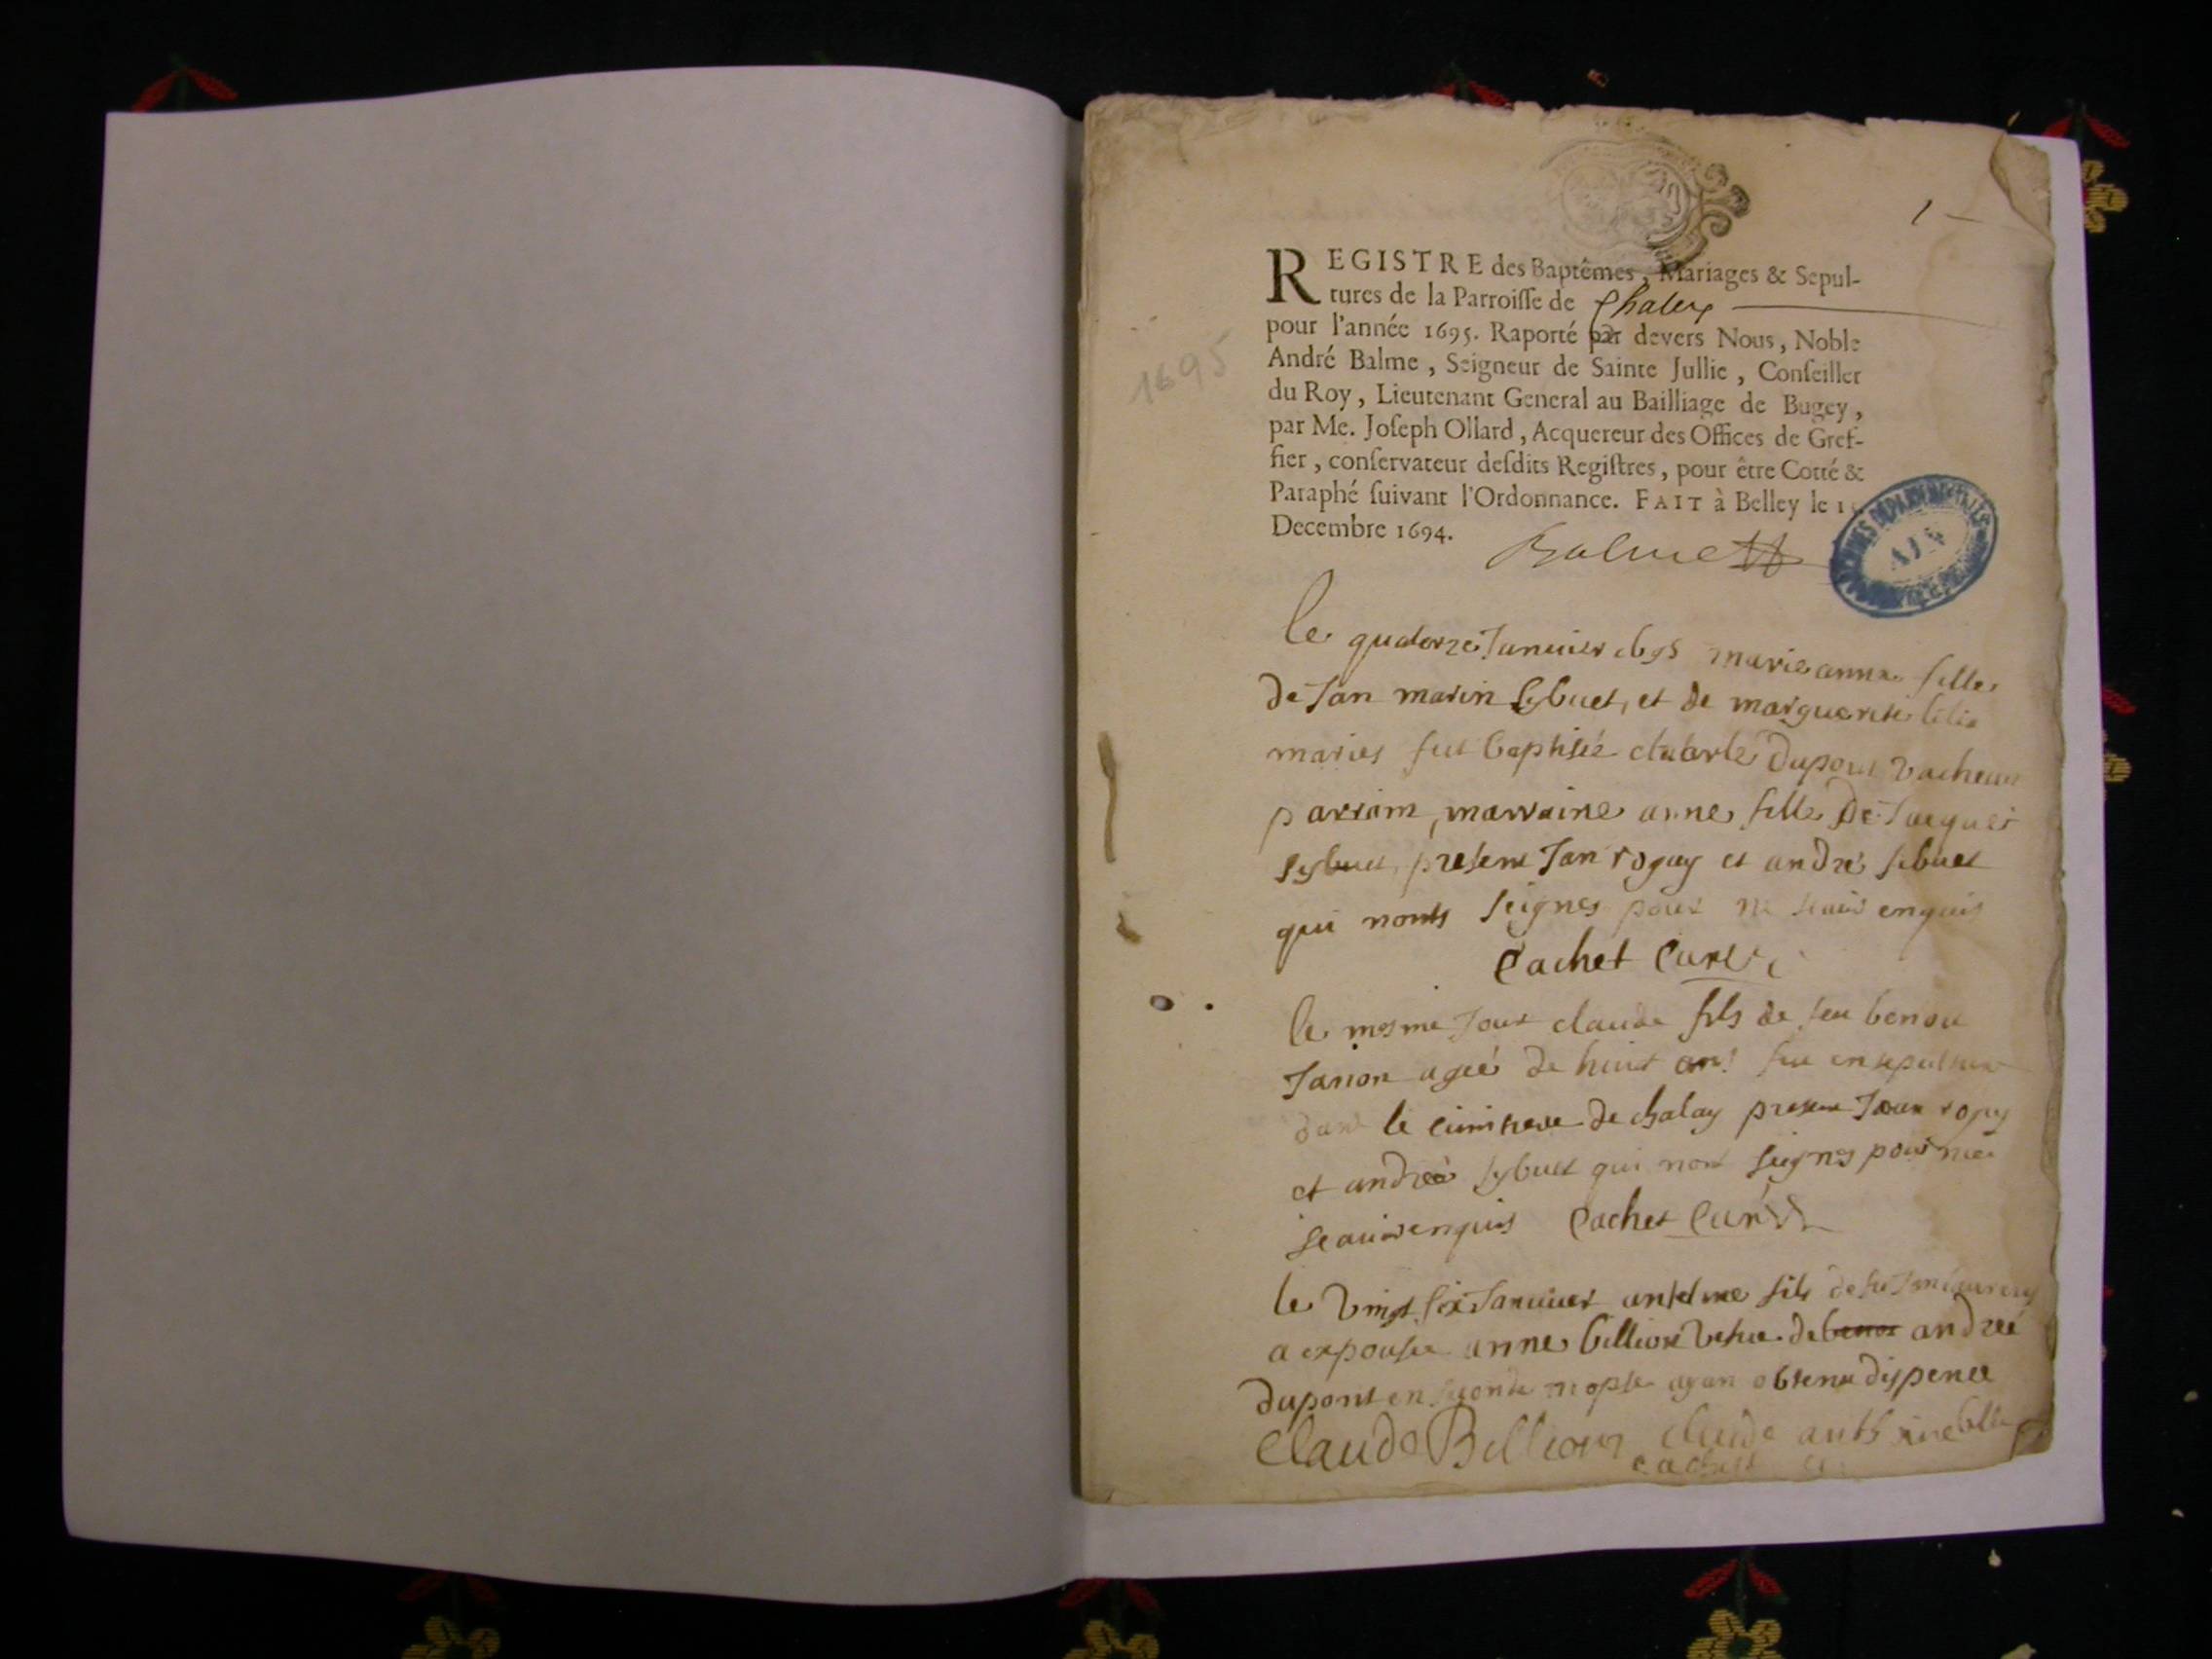 1
REGISTRE des Baptêmes, Mariages & Sepul-
tures de la Parroisse de Chaley
pour l'année 1695. Raporté par devers Nous, Noble
1695
André Balme, Seigneur de Sainte Jullie, Conseiller
du Roy, Lieutenant General au Bailliage de Bugey,
par Me. Joseph Ollard, Acquereur des Offices de Gref-
fier, conservateur desdits Registres, pour être Cotté &
Paraphé suivant l'Ordonnance. FAIT à Belley le
Decembre 1694.
Balme
ARCHIVES DEPARTEMENTALES
AIN
le quatorze Januier marie anne fille
de Jan marin Sybuet, et de marguerite
maries fut baptisée dupont
parrain, marraine anne fille de Jacques
Sybuet, present Jan rogay et andré sibuet
qui nonts seignes pour ne enquis
Cachet Curé
le mesme Jour claude fils de feu benoit
Janon ageé de huict ans fut ensepulture
dans le cimitiere de chalay present Jean
et andreé sybuet qui nont seignes pour ne
scauoir enquis Cachet Curé
le Vingt six Januier antelme fils de
a expousee anne billion Vefue de andreé
dupont en seconde nopse ayan obtenu dispence
Claude Billion claude
cachet